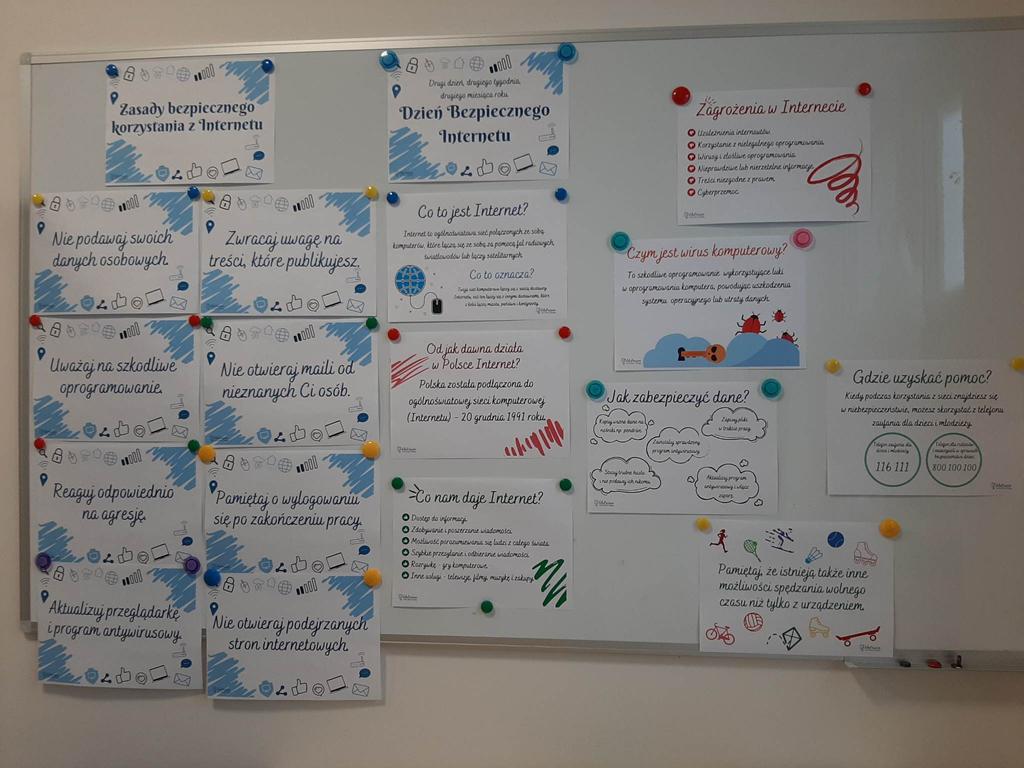 Zasady bezpiecznego
korzystania z Internetu
Nie podawaj swoich
danych osobowych
Zwracaj uwagę na
treści, które publikujesz.
Uważaj na szkodliwe
oprogramowanie.
Nie otwieraj maili od
nieznanych Ci osób.
Reaguj odpowiednio
na agresję.
Pamiętaj o wylogowaniu
się po zakończeniu pracy.
Aktualizuj przeglądarkę
i program antywirusowy.
Nie otwieraj podejrzanych
stron internetowych.
Drugi dzień, drugiego tygodnia,
drugiego miesiąca roku
Dzień Bezpiecznego
Internetu
Co to jest Internet?
Internet to ogólnoświatowa sieć połączonych ze sobą
komputerów, które łączą się ze sobą za pomocą fal radiowych,
światłowodów lub łączy satelitarnych.
Co to oznacza?
Od jak dawna działa
w Polsce Internet?
Polska została podłączona do
ogólnoświatowej sieci komputerowej
(Internetu) - 20 grudnia 1991 roku.
Co nam daje Internet?
Dostęp do informacji.
Zdobywanie i poszerzanie wiadomości.
Możliwość porozumiewania się ludzi z całego świata.
Szybkie przesyłanie i odbieranie wiadomości.
Rozrywkę - gry komputerowe.
Inne usługi - telewizję, filmy, muzykę i zakupy.
Zagrożenia w Internecie
Uzależnienia internautów.
Korzystanie z nielegalnego oprogramowania.
Wirusy i złośliwe oprogramowania.
Nieprawdziwe lub nierzetelne informacje.
Treści niezgodne z prawem.
Cyberprzemoc.
Czym jest wirus komputerowy?
To szkodliwe oprogramowanie wykorzystujące luki
w oprogramowaniu komputera, powodując uszkodzenia
systemu operacyjnego lub utraty danych.
Jak zabezpieczyć dane?
Kopiuj ważne dane na
nośniki np. pendrive.
Zapisuj pliki
w trakcie pracy.
Zainstaluj sprawdzony
program antywirusowy.
Stosuj trudne hasła
i nie podawaj ich nikomu.
Aktualizuj program
antywirusowy i włącz
zaporę.
Gdzie uzyskać pomoc?
Kiedy podczas korzystania z sieci znajdziesz się
w niebezpieczeństwie, możesz skorzystać z telefonu
zaufania dla dzieci i młodzieży.
Telefon zaufania dla
dzieci i młodzieży
116 111
Telefon dla rodziców
i nauczycieli w sprawach
bezpieczeństwa dzieci
800 100 100
Pamiętaj, że istnieją także inne
możliwości spędzania wolnego
czasu niż tylko z urządzeniem.